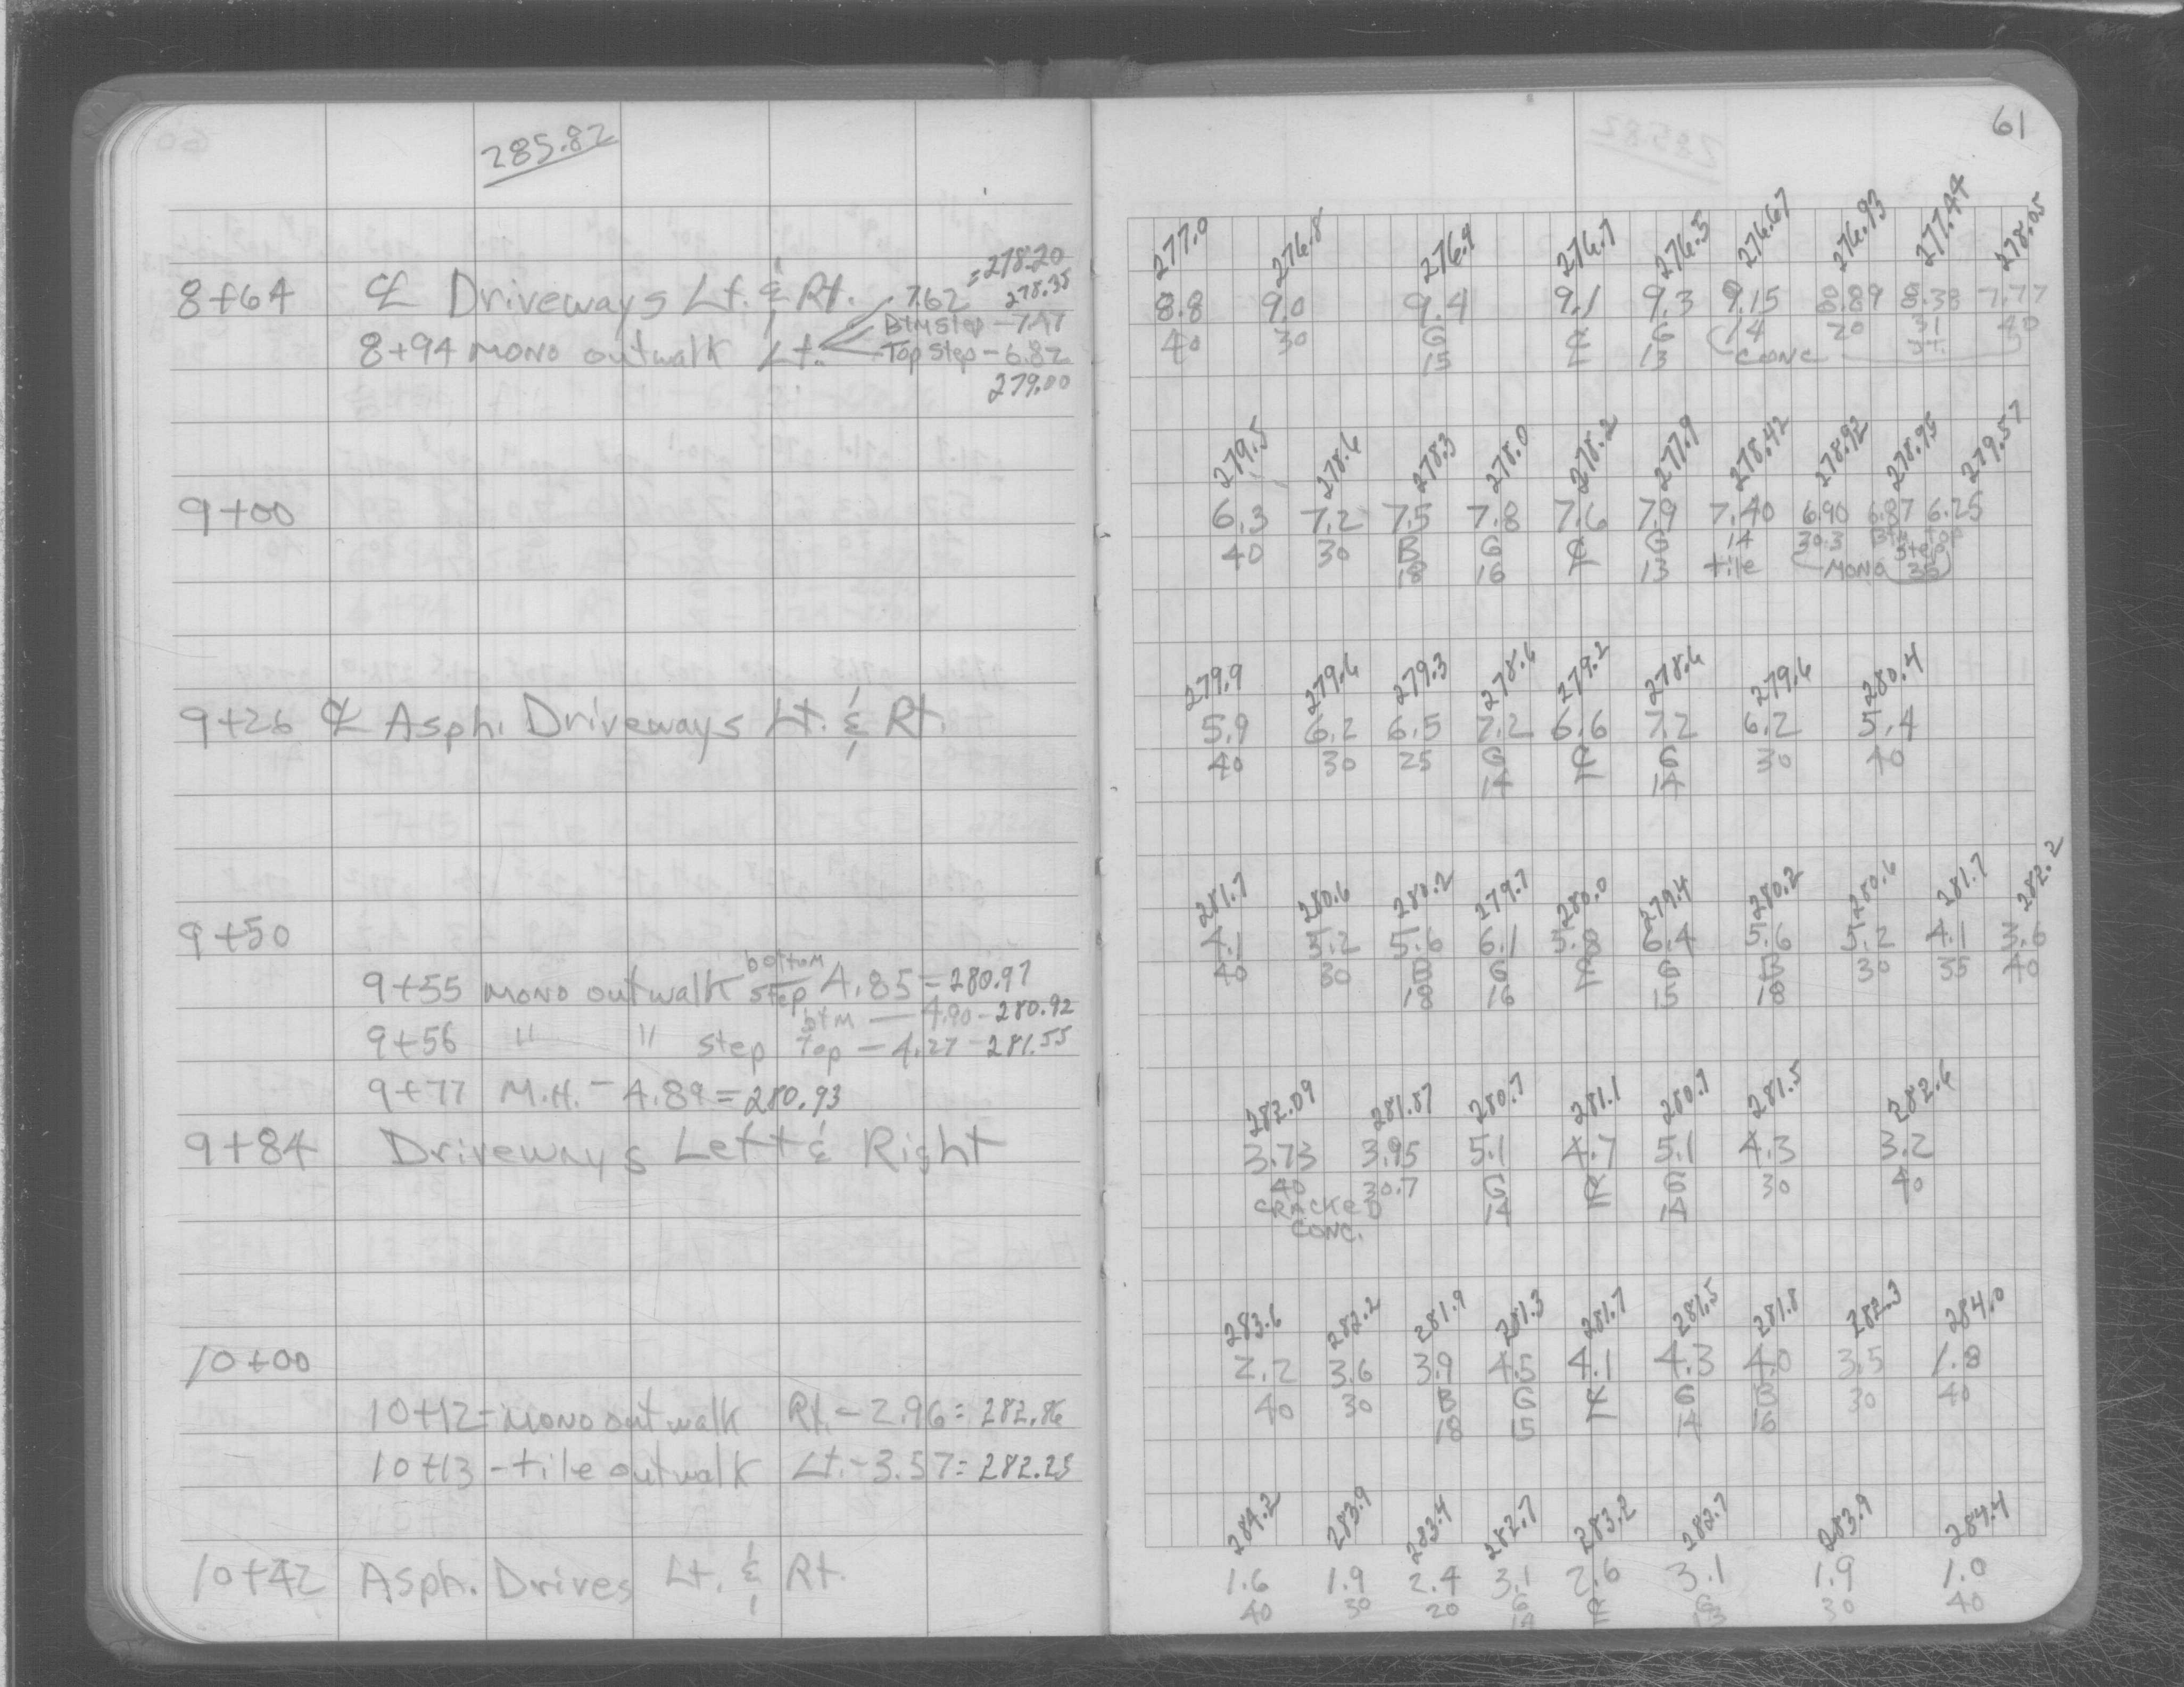 285.82
= 278.20
8+64 ℄ Driveways Lt. & Rt. 7.62 278.35
Btm Step - 7.47
8+94 MONO outwalk Lt. Top Step - 6.82
279.00
9+00
9+26 ℄ Asph. Driveways Lt. & Rt.
9+50
9+55 MONO outwalk bottom step 4.85 = 280.97
btm — 4.90 - 280.92
9+56 " " step Top — 4.27 - 281.55
9+77 M.H. - 4.89 = 280.93
9+84 Driveways Left & Right
10+00
10+12 = MONO outwalk Rt. - 2.96 = 282.86
10+13 - tile outwalk Lt. - 3.57 = 282.25
10+42 Asph. Drives Lt. & Rt.
61
277.0 276.8 276.4 276.7 276.5 276.67 276.93 277.44 278.05
8.8 9.0 9.4 9.1 9.3 9.15 8.89 8.38 7.77
40 30 G ℄ G 14 20 31 40
15 13 CONC
279.5 278.6 278.3 278.0 278.2 277.9 278.42 278.92 278.95 279.57
6.3 7.2 7.5 7.8 7.6 7.9 7.40 6.90 6.87 6.25
40 30 B G ℄ G 14 30.3 Btm Top
Step
18 16 13 tile MONO 35
279.9 279.6 279.3 278.6 279.2 278.6 279.6 280.4
5.9 6.2 6.5 7.2 6.6 7.2 6.2 5.4
40 30 25 G ℄ G 30 40
14 14
281.7 280.6 280.2 279.7 280.0 279.4 280.2 280.6 281.7 282.2
4.1 5.2 5.6 6.1 5.8 6.4 5.6 5.2 4.1 3.6
40 30 B G ℄ G B 30 35 40
18 16 15 18
282.09 281.87 280.7 281.1 280.7 281.5 282.6
3.73 3.95 5.1 4.7 5.1 4.3 3.2
40 30.7 G ℄ G 30 40
CRACKED 14 14
CONC.
283.6 282.2 281.9 281.3 281.7 281.5 281.8 282.3 284.0
2.2 3.6 3.9 4.5 4.1 4.3 4.0 3.5 1.8
40 30 B G ℄ G B 30 40
18 15 14 16
284.2 283.9 283.4 282.7 283.2 282.7 283.9 284.4
1.6 1.9 2.4 3.1 2.6 3.1 1.9 1.0
40 30 20 G ℄ G 30 40
14 13